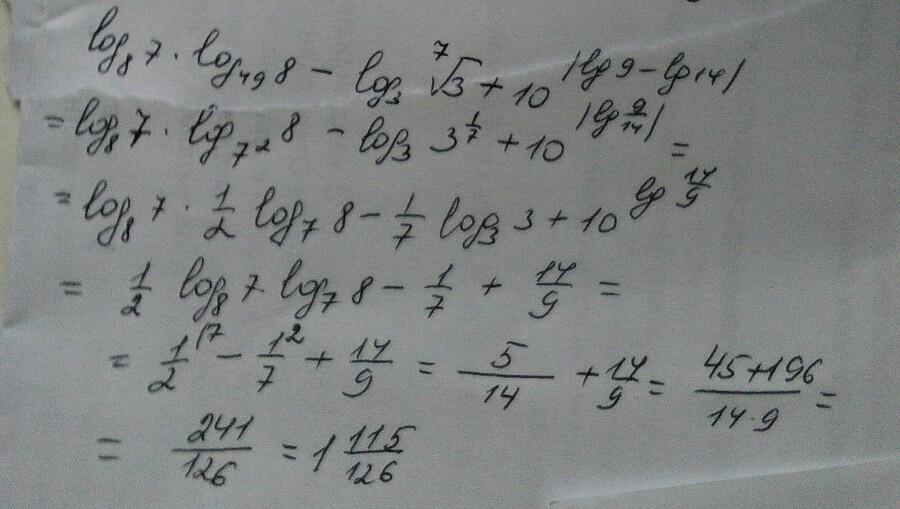 log₈ 7 · log₄₉ 8 − log₃ ⁷√3 + 10^|lg 9 − lg 14|
= log₈ 7 · log_7² 8 − log₃ 3^(1/7) + 10^|lg 9/14| =
= log₈ 7 · 1/2 log₇ 8 − 1/7 log₃ 3 + 10^lg 14/9
= 1/2 log₈ 7 · log₇ 8 − 1/7 + 14/9 =
= 1/2 ^|7 − 1/7 ^2 + 14/9 = 5/14 + 14/9 = 45+196/14·9 =
= 241/126 = 1 115/126